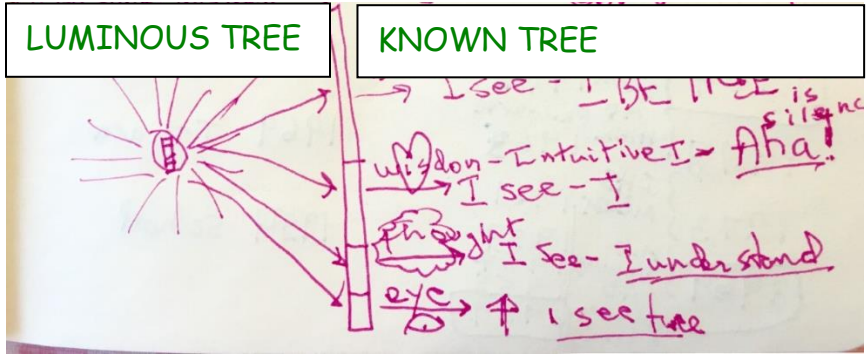 LUMINOUS TREE
KNOWN TREE
I see - I BE
is
silenc
wisdon - Intuitive I - Aha!
I see - I
thought
I see - I understand
eye
I see tree